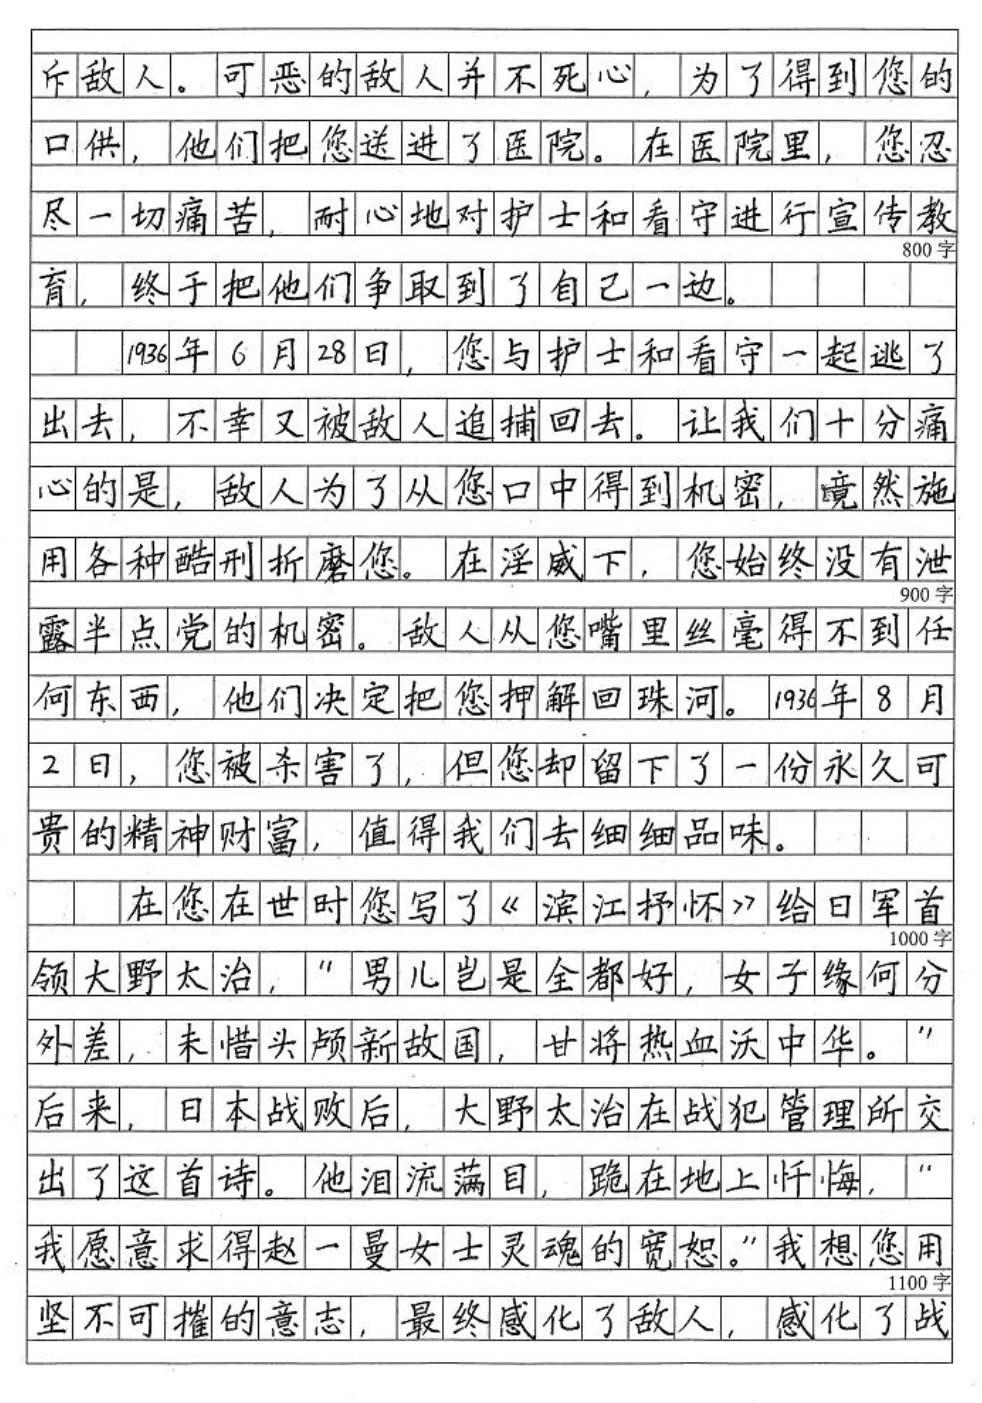 斥敌人。可恶的敌人并不死心，为了得到您的
口供，他们把您送进了医院。在医院里，您忍
尽一切痛苦，耐心地对护士和看守进行宣传教
800字
育，终于把他们争取到了自己一边。
1936年6月28日，您与护士和看守一起逃了
出去，不幸又被敌人追捕回去。让我们十分痛
心的是，敌人为了从您口中得到机密，竟然施
用各种酷刑折磨您。在淫威下，您始终没有泄
900字
露半点党的机密。敌人从您嘴里丝毫得不到任
何东西，他们决定把您押解回珠河。1936年8月
2日，您被杀害了，但您却留下了一份永久可
贵的精神财富，值得我们去细细品味。
在您在世时您写了《滨江抒怀》给日军首
1000字
领大野太治，“男儿岂是全都好，女子缘何分
外差，未惜头颅新故国，甘将热血沃中华。”
后来，日本战败后，大野太治在战犯管理所交
出了这首诗。他泪流满目，跪在地上忏悔，“
我愿意求得赵一曼女士灵魂的宽恕。”我想您用
1100字
坚不可摧的意志，最终感化了敌人，感化了战